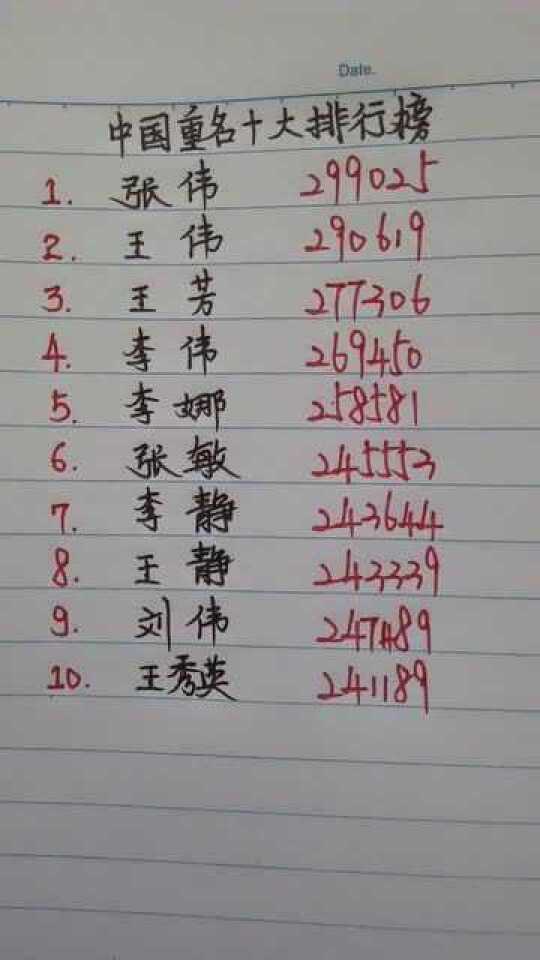 Date.
中国重名十大排行榜
1. 张伟 299025
2. 王伟 290619
3. 王芳 277306
4. 李伟 269450
5. 李娜 258581
6. 张敏 245553
7. 李静 243644
8. 王静 243339
9. 刘伟
10. 王秀英 241189